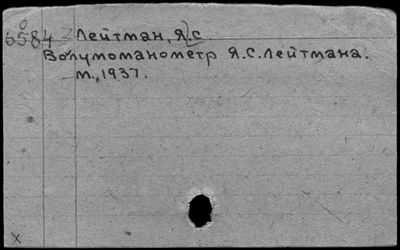 6584 Лейтман, Я.С.
Волумоманометр Я.С. Лейтмана.
М., 1937.
x